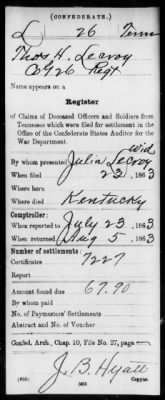 (CONFEDERATE.)
L 26 Tenn
Thos H. Lecroy
Co G 26 Regt
Name appears on a
Register
of Claims of Deceased Officers and Soldiers from
Tennessee which were filed for settlement in the
Office of the Confederate States Auditor for the
War Department.
By whom presented Julia Lecroy Wid
When filed 23, 1863
Where born
Where died Kentucky
Comptroller:
When reported to July 23, 1863
When returned Aug 5, 1863
Number of settlements:
Certificates 7227
Report
Amount found due 67.90
By whom paid
No. of Paymasters' Settlements
Abstract and No. of Voucher
Confed. Arch., Chap. 10, File No. 27, page
J. B. Hyatt
Copyist.